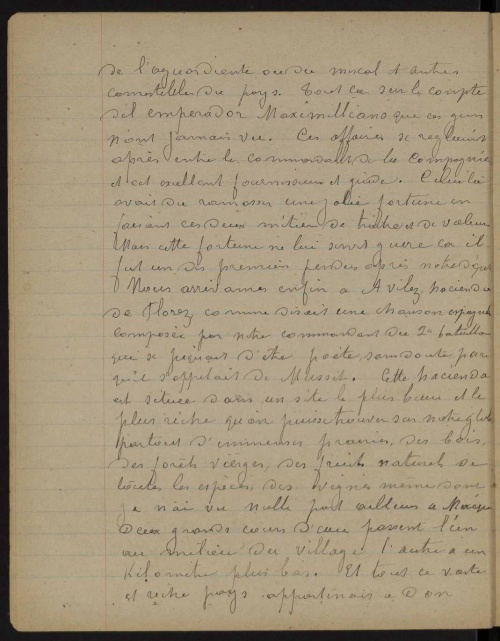 de l'aguardiente ou du mescal et autres
comestibles du pays. Tout ça sur le compte
del emperador Maximilliano que ces gens
n'ont jamais vu. Ces affaires se reglaient
après entre le commandant de la compagnie
et cet excellent fournisseur et guide. Celui là
avait du ramasser une jolie fortune en
faisant ces deux métiers de traitre et de voleur
Mais cette fortune ne lui servit guere car il
fut un des premiers pendus après notre départ
Nous arrivames enfin a Avilez hacienda
de Florez comme disait une chanson espagnole
composée par notre commandant du 2e bataillon
qui se piquait d'être poète, sans doute parce
qu'il s'appelait de Musset. Cette hacienda
est située dans un site le plus beau et le
plus riche qu'on puisse trouver sur notre globe
partout d'immenses prairies, des bois,
des forêts vierges, des fruits naturels de
toutes les espèces, des vignes même dont
je n'ai vu nulle part ailleurs a Mexique
Deux grands cours d'eau passent l'un
au milieu du village l'autre a un
Kilomètre plus bas. Et tout ce vaste
et riche pays appartenait a Don